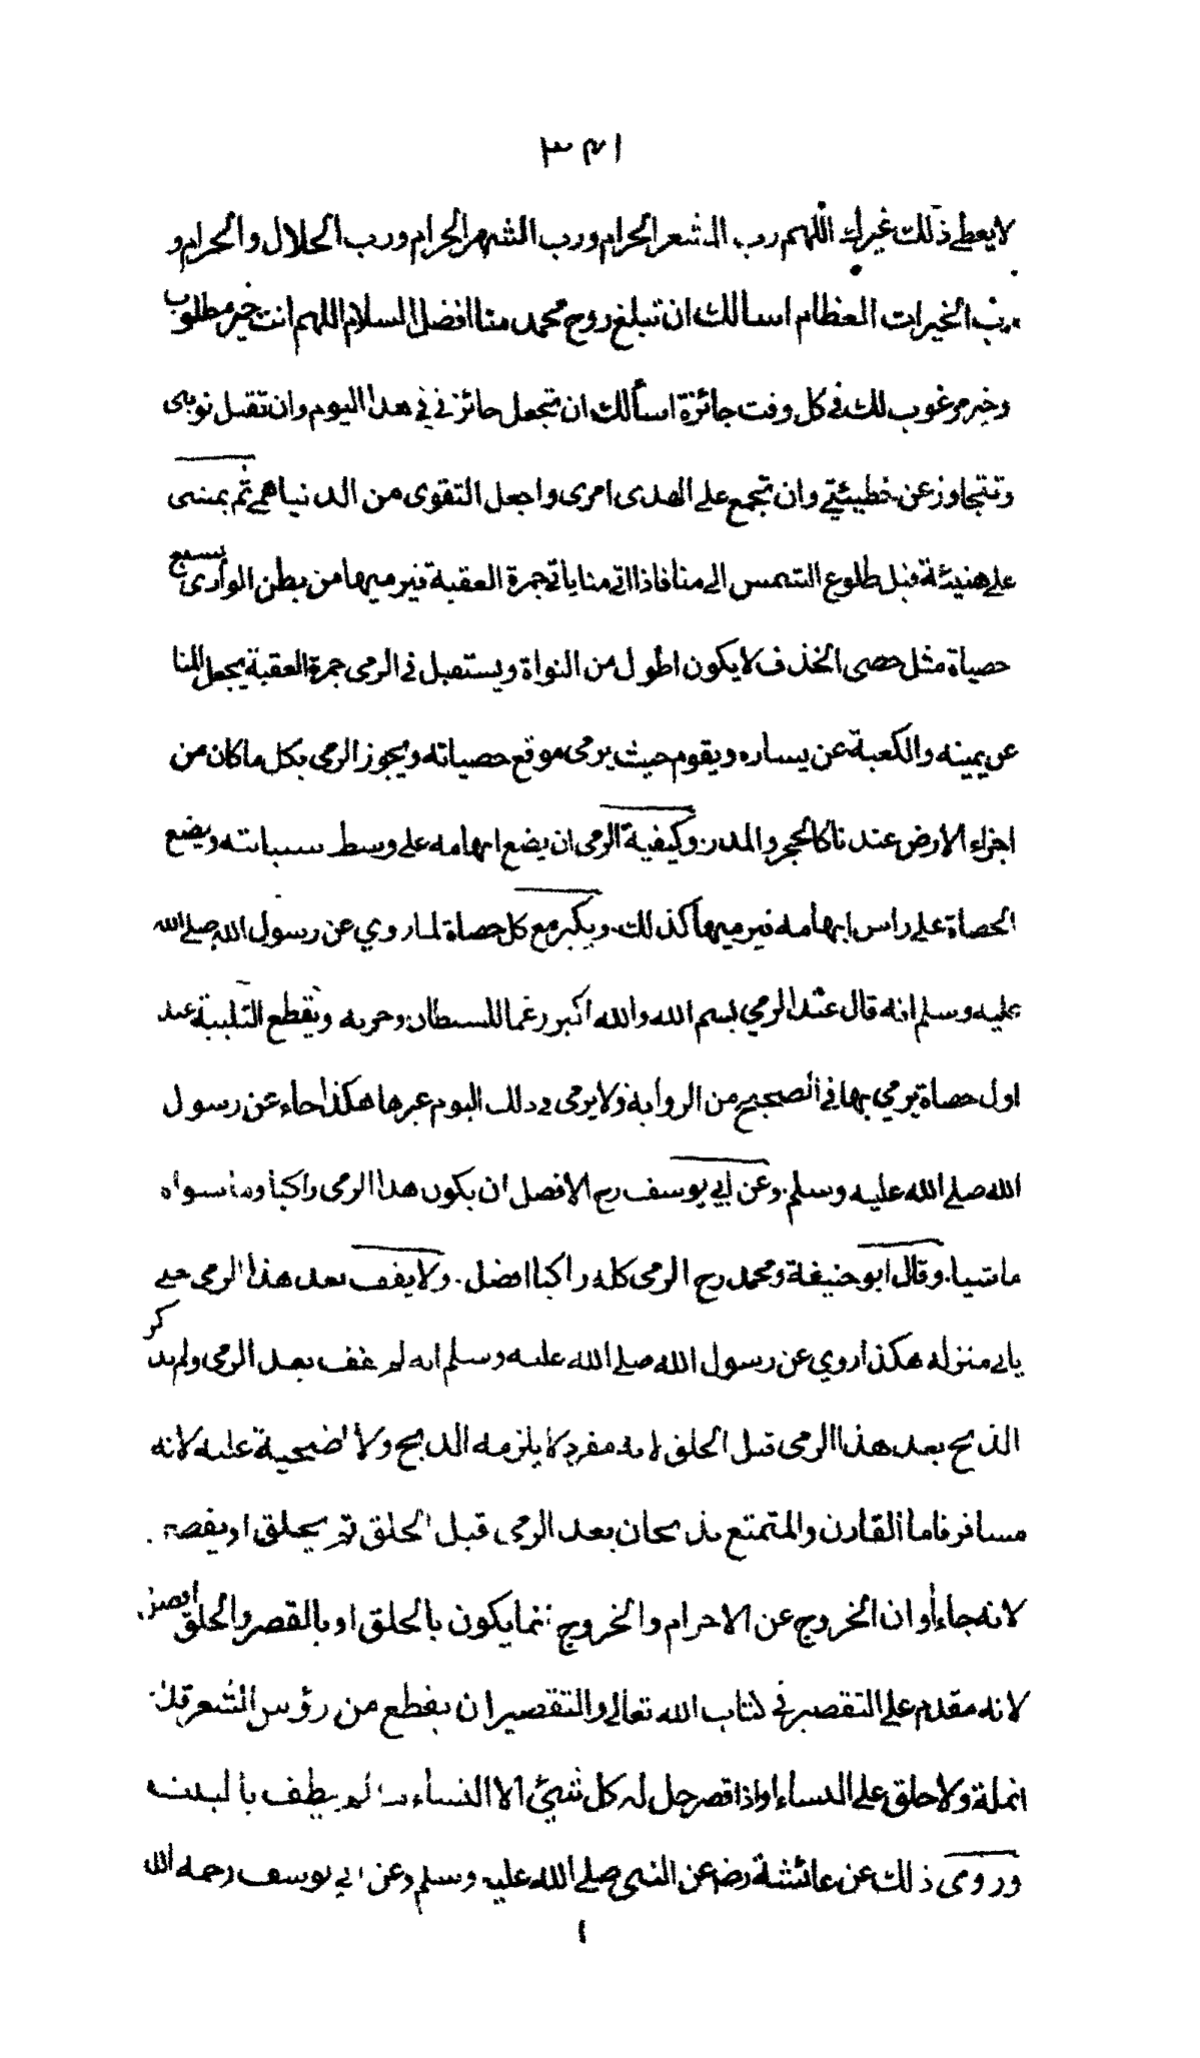 ٣٤١
لا يعطي ذلك غيرك اللهم رب المشعر الحرام ورب الشهر الحرام ورب الحلال والحرام و
رب الخيرات العظام اسالك ان تبلغ روح محمد منا افضل السلام اللهم انت خير مطلوب
وخير مرغوب لك في كل وقت جائزة اسألك ان تجعل جائزتي في هذا اليوم وان تقبل توبتى
وتتجاوز عن خطيئتي وان تجمع على الهدى امرى واجعل التقوى من الدنيا همي ثم يمضى
على هنيئة قبل طلوع الشمس الى منا فاذا اتى منا ياتي جمرة العقبة فيرميها من بطن الوادى بسبع
حصياة مثل حصى الخذف لا يكون اطول من النواة ويستقبل في الرمى جمرة العقبة يجعل المنا
عن يمينه والكعبة عن يساره ويقوم حيث يرمى موقع حصياته ويجوز الرمى بكل ما كان من
اجزاء الارض عندنا كالحجر والمدر وكيفية الرمى ان يضع ابهامه على وسط سبابته ويضع
الحصاة على راس ابهامه فيرميها كذلك. ويكبر مع كل حصاة لما روي عن رسول الله صلى الله
عليه وسلم انه قال عند الرمي بسم الله والله اكبر رغما للشيطان وحزبه ويقطع التلبية عند
اول حصاة يرمي بها في الصحيح من الرواية ولا يرمى في ذلك اليوم غيرها هكذا جاء عن رسول
الله صلى الله عليه وسلم. وعن ابي يوسف رح الافضل ان يكون هذا الرمى راكبا وما سواه
ماشيا. وقال ابو حنيفة ومحمد رح الرمى كله راكبا افضل. ولا يقف بعد هذا الرمي حتى
ياتي منزله هكذا روي عن رسول الله صلى الله عليه وسلم انه لم يقف بعد الرمى ولم يذكر
الذبح بعد هذا الرمى قبل الحلق لانه مفرد لا يلزمه الذبح ولا اضحية عليه لانه
مسافر فاما القارن والمتمتع يذبحان بعد الرمي قبل الحلق ثم يحلق او يقصر
لانه جاء أوان الخروج عن الاحرام والخروج انما يكون بالحلق او بالقصر والحلق افضل
لانه مقدم على التقصير في كتاب الله تعالى والتقصير ان يقطع من رؤس الشعر قدر
انملة ولا حلق على النساء واذا قصر حل له كل شيئ الا النساء ما لم يطف بالبيت
وروى ذلك عن عائشة رضـ عن النبى صلى الله عليه وسلم وعن ابي يوسف رحمه الله